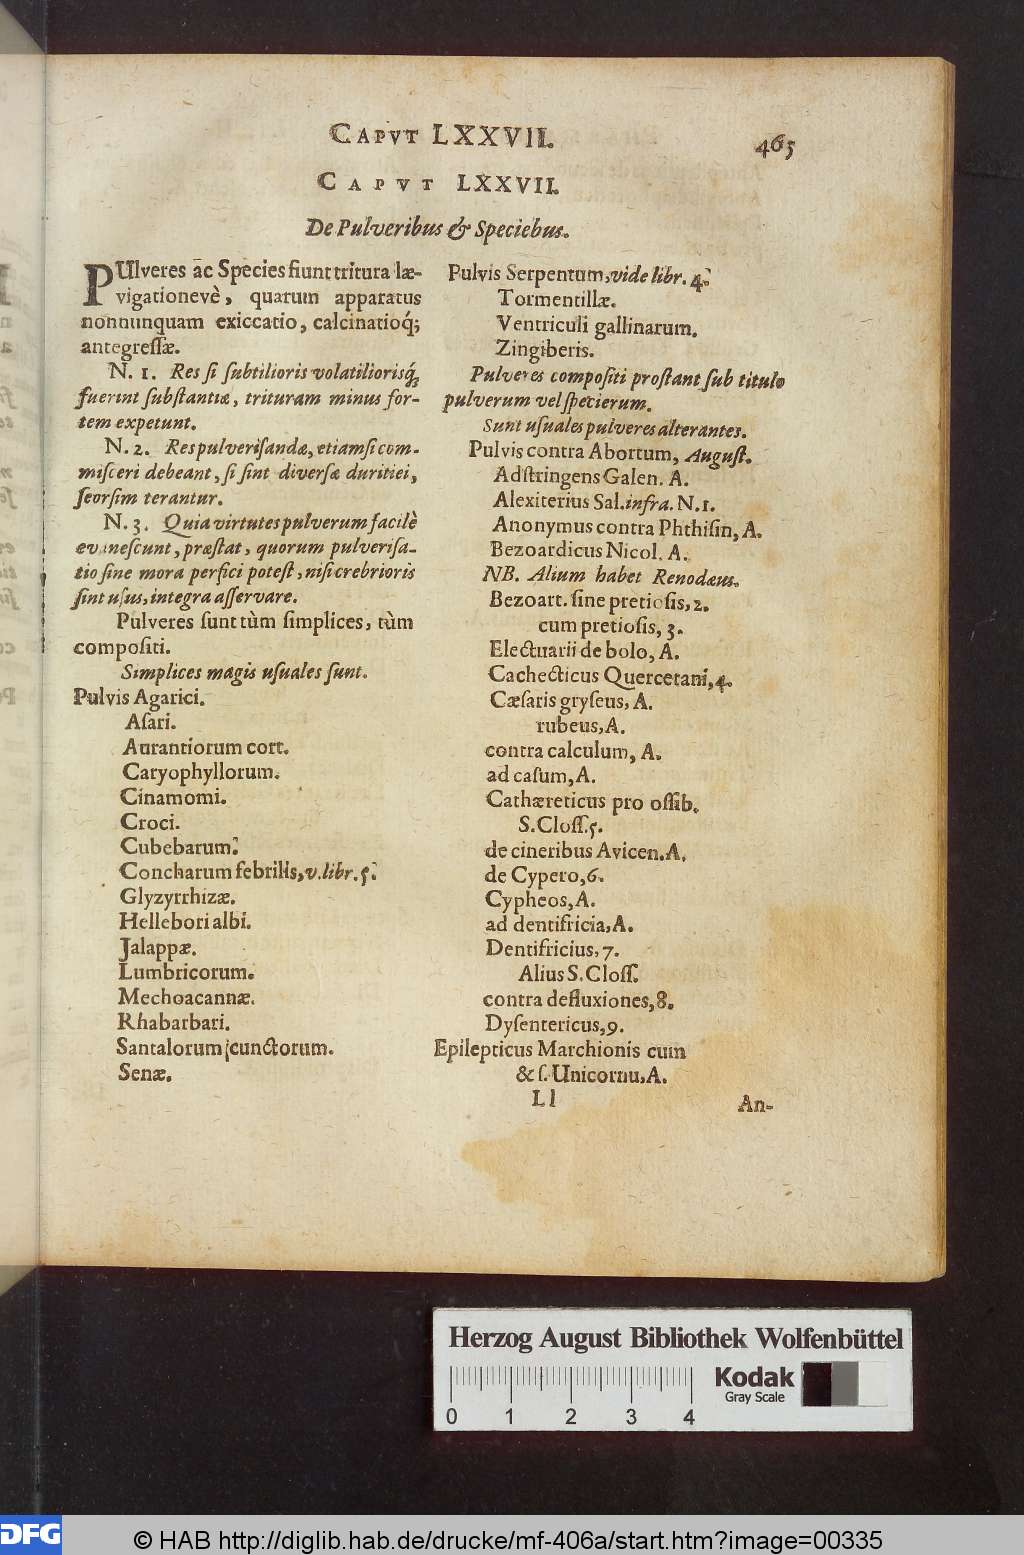 CAPVT LXXVII.
465
CAPVT LXXVII.
De Pulveribus & Speciebus.
PUlveres ac Species fiunt tritura læ-
vigationevè, quarum apparatus
nonnunquam exiccatio, calcinatioq́;
antegressæ.
N. 1. Res si subtilioris volatiliorisq́;
fuerint substantiæ, trituram minus for-
tem expetunt.
N. 2. Res pulverisandæ, etiamsi com-
misceri debeant, si sint diversæ duritiei,
seorsim terantur.
N. 3. Quia virtutes pulverum facilè
evanescunt, præstat, quorum pulverisa-
tio sine mora perfici potest, nisi crebrioris
sint usus, integra asservare.
Pulveres sunt tùm simplices, tùm
compositi.
Simplices magis usuales sunt.
Pulvis Agarici.
Asari.
Aurantiorum cort.
Caryophyllorum.
Cinamomi.
Croci.
Cubebarum.
Concharum febrilis, v. libr. 5.
Glyzyrrhizæ.
Hellebori albi.
Jalappæ.
Lumbricorum.
Mechoacannæ.
Rhabarbari.
Santalorum cunctorum.
Senæ.
Pulvis Serpentum, vide libr. 4.
Tormentillæ.
Ventriculi gallinarum.
Zingiberis.
Pulveres compositi prostant sub titulo
pulverum vel specierum.
Sunt usuales pulveres alterantes.
Pulvis contra Abortum, August.
Adstringens Galen. A.
Alexiterius Sal. infra. N. 1.
Anonymus contra Phthisin, A.
Bezoardicus Nicol. A.
NB. Alium habet Renodæus.
Bezoart. sine pretiosis, 2.
cum pretiosis, 3.
Electuarii de bolo, A.
Cachecticus Quercetani, 4.
Cæsaris gryseus, A.
rubeus, A.
contra calculum, A.
ad casum, A.
Cathæreticus pro ossib.
S. Closs. 5.
de cineribus Avicen. A.
de Cypero, 6.
Cypheos, A.
ad dentifricia, A.
Dentifricius, 7.
Alius S. Closs.
contra defluxiones, 8.
Dysentericus, 9.
Epilepticus Marchionis cum
& s. Unicornu, A.
Ll
An-
Herzog August Bibliothek Wolfenbüttel
Kodak
Gray Scale
0 1 2 3 4
DFG
© HAB http://diglib.hab.de/drucke/mf-406a/start.htm?image=00335